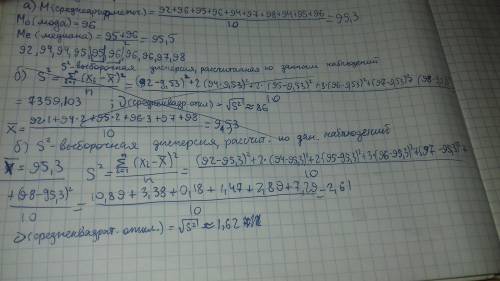 а) M(среднеарифметич) = 92+96+95+96+94+97+98+94+95+96 / 10 = 95,3
Mo(мода) = 96
Me(медиана) = 95+96 / 2 = 95,5
92, 94, 94, 95, 95, 96, 96, 96, 97, 98
S²-выборочная дисперсия, рассчитанная по данным наблюдений
б) S² = Σ (Xi - X̄)² / n = (92-9,53)² + 2(94-9,53)² + 2·(95-9,53)² + 3·(96-9,53)² + (97-9,53)² + (98-9,53)² / 10
= 7359,103 ; (среднеквадр откл) = √S² ≈ 86
X̄ = 92·1+94·2+95·2+96·3+97+98 / 10 = 9,53
б) S²-выборочная дисперсия, рассчит. по дан. наблюдений
X̄ = 95,3 S² = Σ (Xi - X̄)² / n = (92-95,3)² + 2·(94-95,3)² + 2(95-95,3)² + 3·(96-95,3)² + (97-95,3)² +
+ (98-95,3)² / 10 = 10,89+3,38+0,18+1,47+2,89+7,29 / 10 = 2,61
(среднеквадрат. откл.) = √S² ≈ 1,62